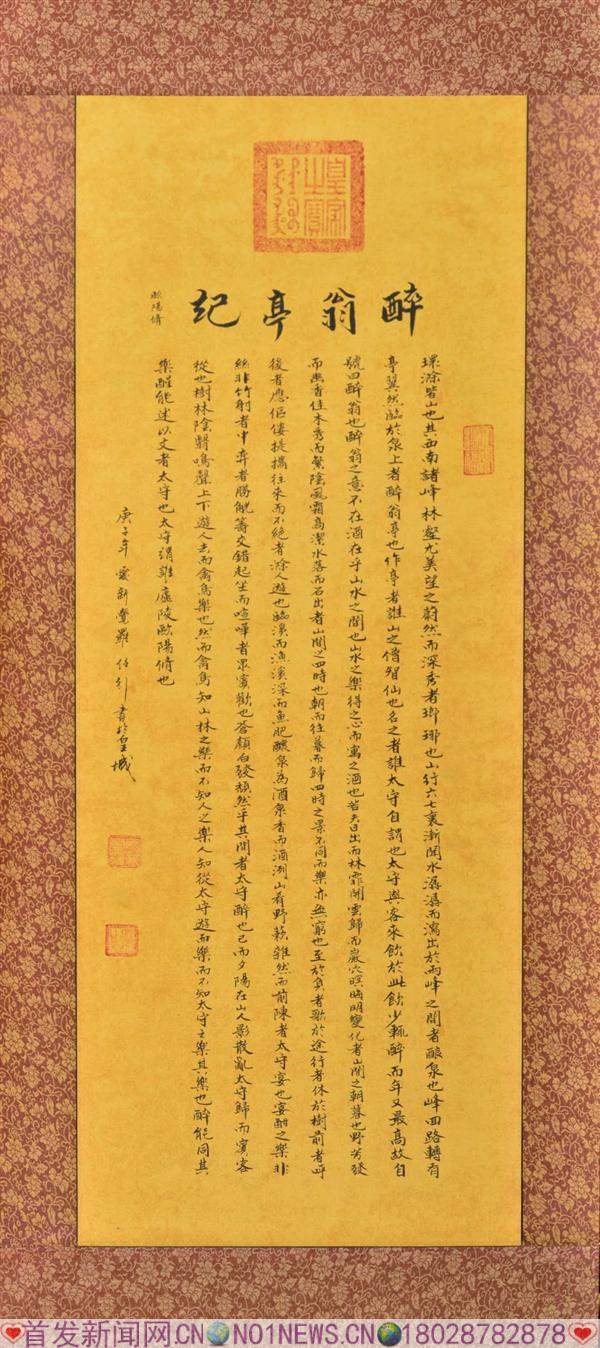 皇家之寶
醉翁亭紀
歐陽脩
環滁皆山也其西南諸峰林壑尤美望之蔚然而深秀者瑯琊也山行六七裏漸聞水潺潺而瀉出於兩峰之間者釀泉也峰回路轉有
亭翼然臨於泉上者醉翁亭也作亭者誰山之僧智仙也名之者誰太守自謂也太守與客來飲於此飲少輒醉而年又最高故自
號曰醉翁也醉翁之意不在酒在乎山水之間也山水之樂得之心而寓之酒也若夫日出而林霏開雲歸而巖穴暝晦明變化者山間之朝暮也野芳發
而幽香佳木秀而繁陰風霜高潔水落而石出者山間之四時也朝而往暮而歸四時之景不同而樂亦無窮也至於負者歌於途行者休於樹前者呼
後者應傴僂提攜往來而不絕者滁人遊也臨溪而漁溪深而魚肥釀泉為酒泉香而酒洌山肴野蔌雜然而前陳者太守宴也宴酣之樂非
絲非竹射者中弈者勝觥籌交錯起坐而喧嘩者眾賓歡也蒼顏白發頹然乎其間者太守醉也已而夕陽在山人影散亂太守歸而賓客
從也樹林陰翳鳴聲上下遊人去而禽鳥樂也然而禽鳥知山林之樂而不知人之樂人知從太守遊而樂而不知太守之樂其樂也醉能同其
樂醒能述以文者太守也太守謂誰廬陵歐陽脩也
庚子年 愛新覺羅 書於皇城
首发新闻网.CN NO1NEWS.CN 18028782878